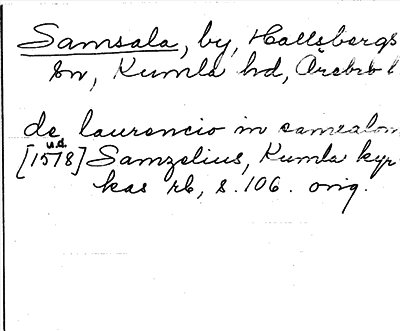 Samsala, by, Hallsbergs
sn, Kumla hd, Örebro l
de laurencio in samsalom
u.d.
[1578] Samzelius, Kumla kyr
kas rb, s. 106. orig.